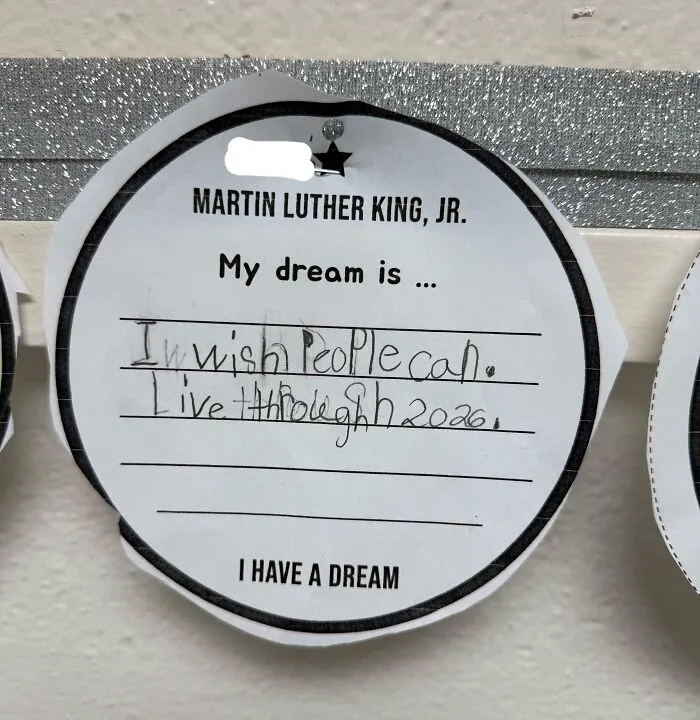 MARTIN LUTHER KING, JR.
My dream is ...
I wish PeoPle can.
Live through 2026.
I HAVE A DREAM